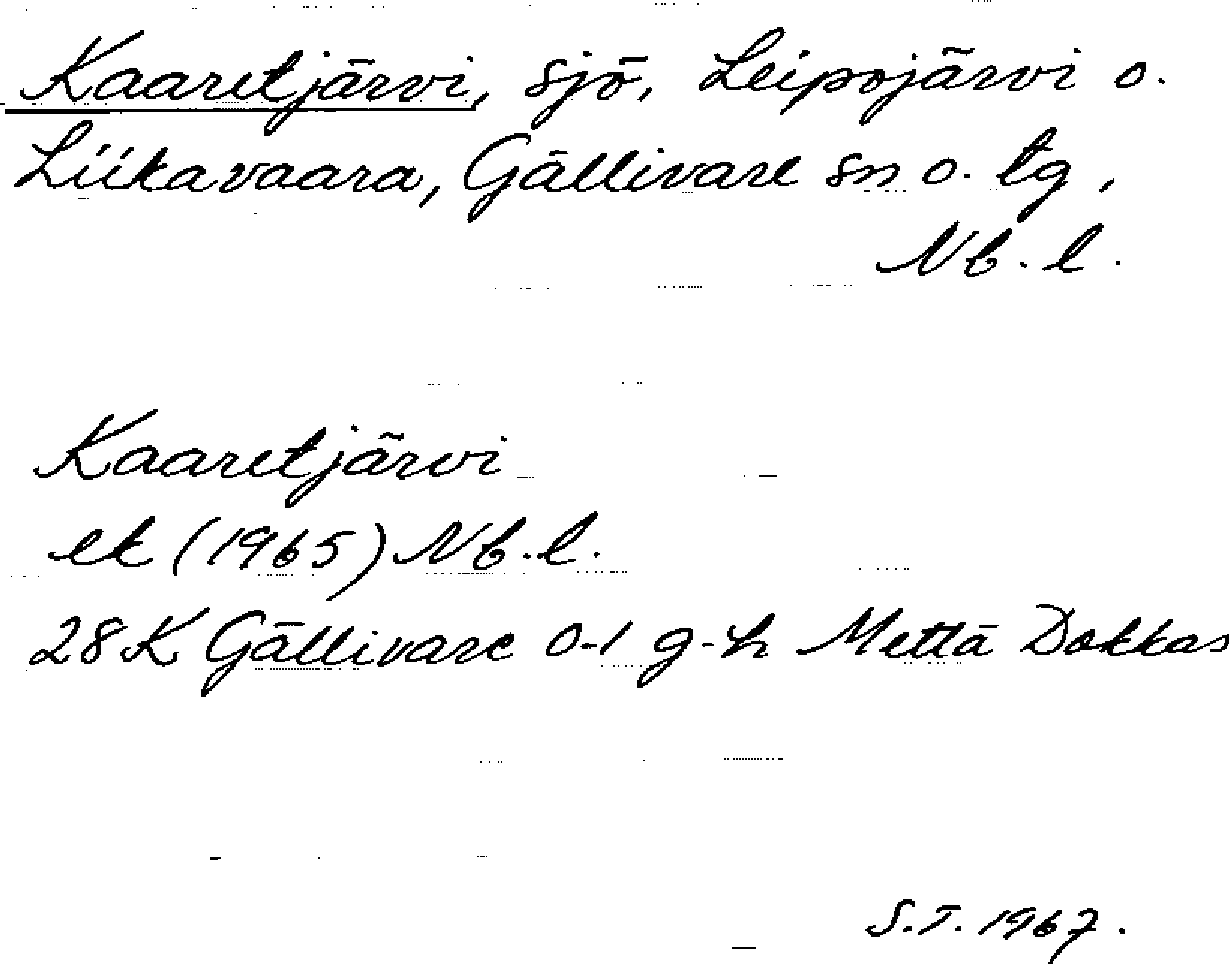 Kaaretjärvi, sjö, Leipojärvi o.
Liikavaara, Gällivare sn o. tg,
Nb. l.
Kaaretjärvi
ek (1965) Nb. l.
28K Gällivare 0-1 g-h Mettä Dokkas
S.T. 1967.